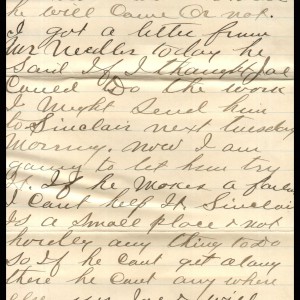 he will come or not.
I got a letter from
Mr Needler today he
said If I thought Joe
could Do the work
I Might Send him
to Sinclair next tuesday
Morning. now I am
going to let him try
It. If he Makes a fail
I cant help It Sinclair
Is a Small place & not
hardley any thing to Do
So If he cant get along
there he cant any where
else